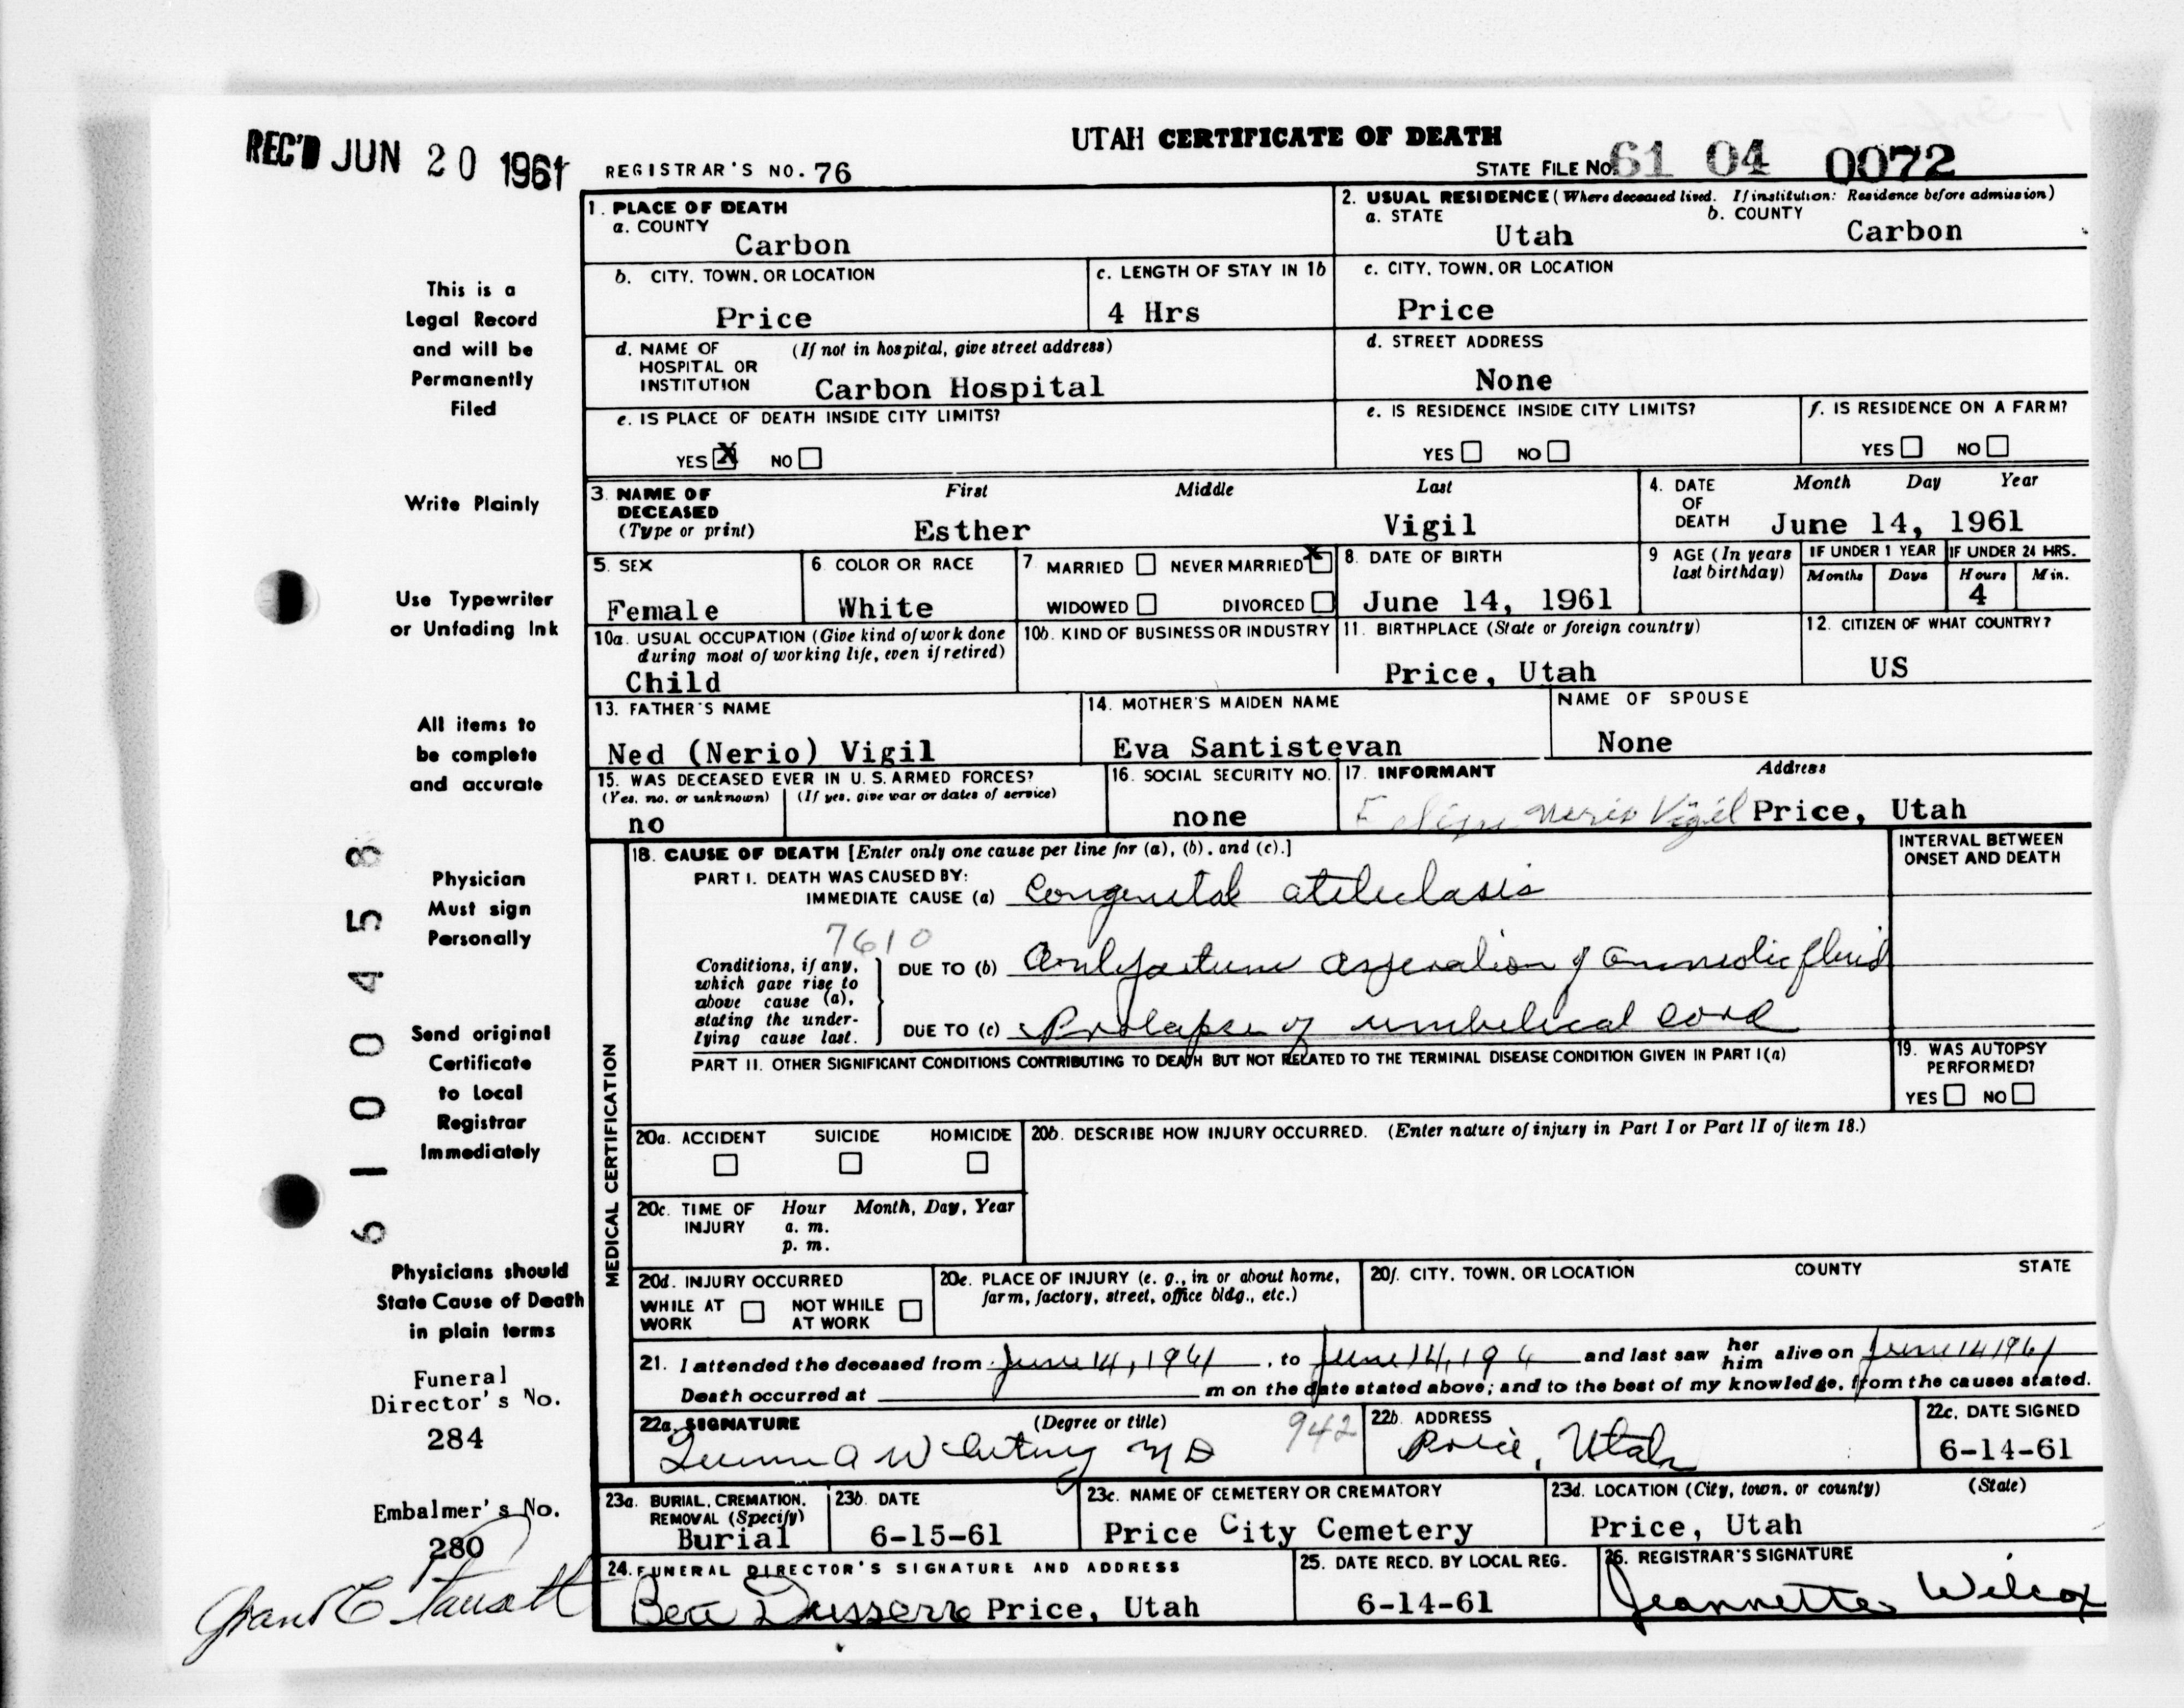 UTAH CERTIFICATE OF DEATH
REC'D JUN 20 1961
REGISTRAR'S NO. 76
STATE FILE NO. 61 04 0072
1. PLACE OF DEATH
a. COUNTY
Carbon
2. USUAL RESIDENCE (Where deceased lived. If institution: Residence before admission)
a. STATE
Utah
b. COUNTY
Carbon
b. CITY, TOWN, OR LOCATION
Price
c. LENGTH OF STAY IN 1b
4 Hrs
c. CITY, TOWN, OR LOCATION
Price
d. NAME OF HOSPITAL OR INSTITUTION
(If not in hospital, give street address)
Carbon Hospital
d. STREET ADDRESS
None
e. IS PLACE OF DEATH INSIDE CITY LIMITS?
YES X NO
e. IS RESIDENCE INSIDE CITY LIMITS?
YES NO
f. IS RESIDENCE ON A FARM?
YES NO
3. NAME OF DECEASED
(Type or print)
First Middle Last
Esther Vigil
4. DATE OF DEATH
Month Day Year
June 14, 1961
5. SEX
Female
6. COLOR OR RACE
White
7. MARRIED NEVER MARRIED X
WIDOWED DIVORCED
8. DATE OF BIRTH
June 14, 1961
9 AGE (In years last birthday)
IF UNDER 1 YEAR
Months Days
IF UNDER 24 HRS.
Hours Min.
4
10a. USUAL OCCUPATION (Give kind of work done during most of working life, even if retired)
Child
10b. KIND OF BUSINESS OR INDUSTRY
11. BIRTHPLACE (State or foreign country)
Price, Utah
12. CITIZEN OF WHAT COUNTRY?
US
13. FATHER'S NAME
Ned (Nerio) Vigil
14. MOTHER'S MAIDEN NAME
Eva Santistevan
NAME OF SPOUSE
None
15. WAS DECEASED EVER IN U.S. ARMED FORCES?
(Yes, no, or unknown) (If yes, give war or dates of service)
no
16. SOCIAL SECURITY NO.
none
17. INFORMANT Address
Nerio Vigil Price, Utah
MEDICAL CERTIFICATION
18. CAUSE OF DEATH [Enter only one cause per line for (a), (b), and (c).]
INTERVAL BETWEEN ONSET AND DEATH
PART I. DEATH WAS CAUSED BY:
IMMEDIATE CAUSE (a) Congenital
7610
Conditions, if any, which gave rise to above cause (a), stating the underlying cause last.
DUE TO (b) of fluid
DUE TO (c) Prolapse of umbelical cord
PART II. OTHER SIGNIFICANT CONDITIONS CONTRIBUTING TO DEATH BUT NOT RELATED TO THE TERMINAL DISEASE CONDITION GIVEN IN PART I(a)
19. WAS AUTOPSY PERFORMED?
YES NO
20a. ACCIDENT SUICIDE HOMICIDE
20b. DESCRIBE HOW INJURY OCCURRED. (Enter nature of injury in Part I or Part II of item 18.)
20c. TIME OF INJURY
Hour Month, Day, Year
a. m.
p. m.
20d. INJURY OCCURRED
WHILE AT WORK NOT WHILE AT WORK
20e. PLACE OF INJURY (e. g., in or about home, farm, factory, street, office bldg., etc.)
20f. CITY, TOWN, OR LOCATION COUNTY STATE
21. I attended the deceased from June 14, 1961, to June 14, 196 and last saw her him alive on June 14 1961
Death occurred at m on the date stated above; and to the best of my knowledge, from the causes stated.
22a. SIGNATURE (Degree or title)
Whitney MD
942
22b. ADDRESS
Price, Utah
22c. DATE SIGNED
6-14-61
23a. BURIAL, CREMATION, REMOVAL (Specify)
Burial
23b. DATE
6-15-61
23c. NAME OF CEMETERY OR CREMATORY
Price City Cemetery
23d. LOCATION (City, town, or county) (State)
Price, Utah
24. FUNERAL DIRECTOR'S SIGNATURE AND ADDRESS
Price, Utah
25. DATE RECD. BY LOCAL REG.
6-14-61
26. REGISTRAR'S SIGNATURE
Jeannette Wilcox
This is a
Legal Record
and will be
Permanently
Filed
Write Plainly
Use Typewriter
or Unfading Ink
All items to
be complete
and accurate
Physician
Must sign
Personally
Send original
Certificate
to Local
Registrar
Immediately
Physicians should
State Cause of Death
in plain terms
Funeral
Director's No.
284
Embalmer's No.
280
6100458